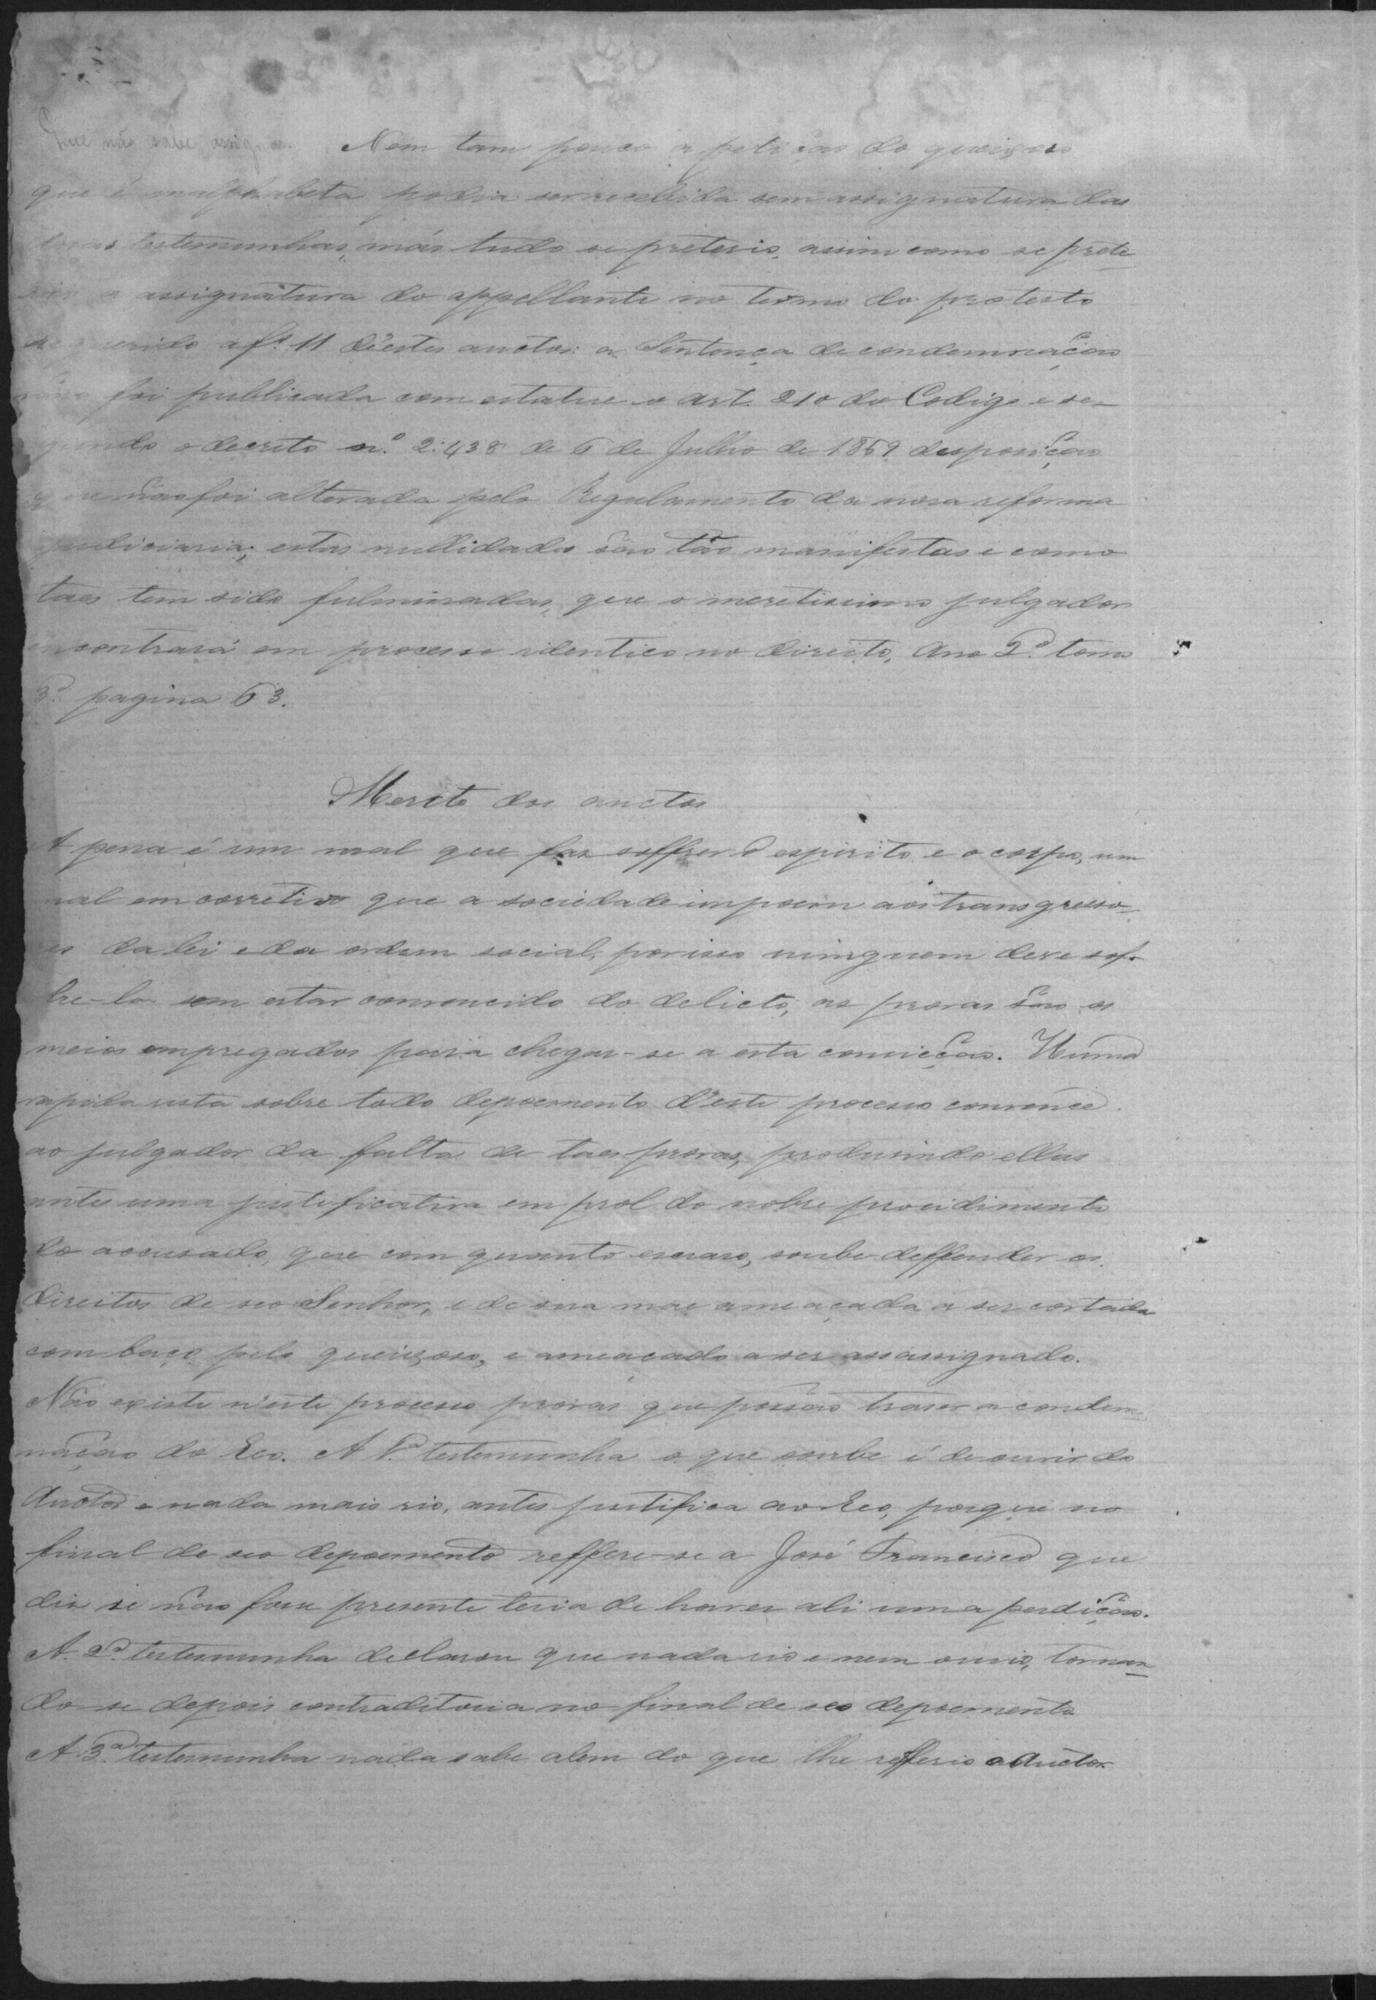 Que não sabe assignar. Nem tam pouco a petiçao do queixoso
que é analphabeta podia ser recebida sem assignatura das
duas testemunhas, más tudo se preterio, assim como se prete-
rio a assignatura do appellante no termo do protesto
requerido a fs. 11 d'estes auctos: a Sentença de condemnaçao
não foi publicada com estatue o art. 210 do Codigo e se-
gundo o decreto n.º 2:438 de 6 de Julho de 1859 desposiçao
que não foi alterada pelo Regulamento da nova reforma
judiciaria; estas nullidades são tão manifestas e como
taes tem sido fulminadas, que o meretissimo julgador
encontrará em processo identico no direito, Ano 2.º tomo
3.º pagina 63.
Mereto dos auctos
A pena é um mal que faz soffrer o espirito e o corpo, um
mal em corretivo que a sociedade impoem aos transgresso-
res da lei e da ordem social, por isso ninguem deve sof-
fre-la sem estar convencido do delicto, as provas são os
meios empregados para chegar-se a esta convicção. Huma
rapida vista sobre todo depoemento d'este processo convence
ao julgador da falta de taes provas, produsindo ellas
antes uma justificativa em prol do nobre procidimento
do accusado, que com quanto escravo, soube deffender os
direitos de seo Senhor, e de sua mae ameaçada a ser cortada
com baço pelo queixoso, e ameaçado a ser assassignado.
Não existe n'este processo provas que possão traser a condem-
nação do Reo. A 1.ª testemunha o que soube é de ouvir do
Auctor e nada mais vio, antes justifica ao Reo, porque no
final de seo depoemento reffere-se a José Francisco que
diz se não fosse presente teria de haver ali uma perdiçao.
A 2.ª testemunha declarou que nada vio e nem ouvio, tornan-
do-se depois contraditoria no final de seo depoemento
A 3.ª testemunha nada sabe alem do que lhe refferio o Auctor